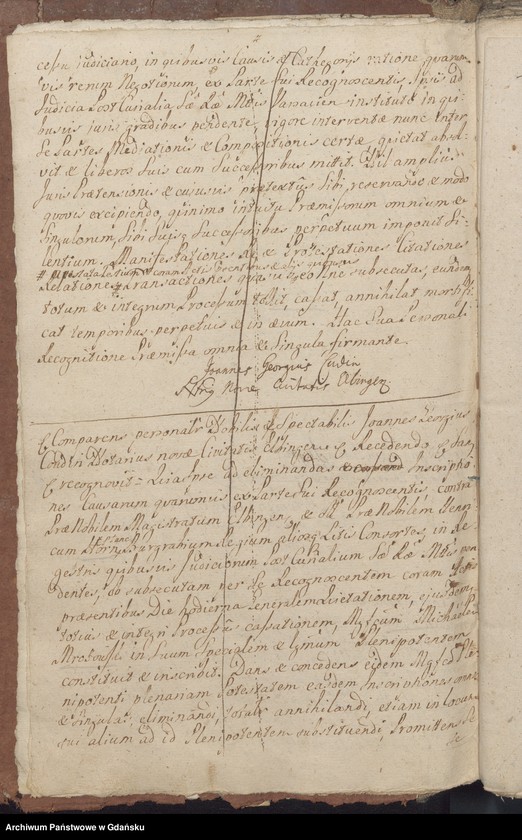 cessu judiciario, in quibusvis Causis et Cathegorijs ratione quarum
vis rerum Negotiorum, ex Parte sui Recognoscentis Juris ad
Judicia Post Curialia Sae Rae Mttis Varsavien instituta in qui
busvis juris gradibus pendente, vigore interventae nunc inter
se Partes Mediationis et Compositionis certae, quietat absol
vit et liberos suis cum Successoribus mittit. Nil amplius
Juris Praetensionis et cujusvis praetextus Sibi, reservando et modo
quovis excipiendo, quinimo intuitu Praemissorum omnium et
Singulorum, Sibi Suisq Successoribus perpetuum imponit Si-
lentium. Manifestationes et Protestationes Citationes
Relationes Transactiones subsecutas, eundem
totum et integrum Processum tollit, cassat, annihilat, mortifi
cat temporibus perpetuis et in aevum. Hac Sua Personali
Recognitione Praemissa omnia et Singula firmante.
Joannes Georgius Cudin
Novae Civitatis Elbingen
Comparens personalr Nobilis et Spectabilis Joannes Georgius
Condin Notarius novae Civitatis Elbingen Recedendo
recognovit Quia Suae ad eliminandas Inscriptio
nes Causarum quarumvis ex Parte sui Recognoscentis contra
Prae Nobilem Magistratum Elbingens et Prae Nobilem Henri
cum Burgrabium Regium aliosq Litis Consortes, in Re
gestris quibusvis Judiciorum Post Curialium Sae Rae Mttis pen
dentes, ob subsecutam per se Recognoscentem coram Actis
praesentibus Die hodierna Generalem Quietationem, ejusdem
totius et integri Processus cassationem, Mgfcum Michaelem
Mrozowski in Suum specialem et Lgnum Plenipotentem
constituit et inscribit. Dans et concedens eidem Mgfco Ple
nipotenti plenariam Potestatem easdem Inscriptiones omnes
et Singulas eliminandi, totalr annihilandi, etiam in locum
sui alium ad id Plenipotentem substituendi, Promittens Se